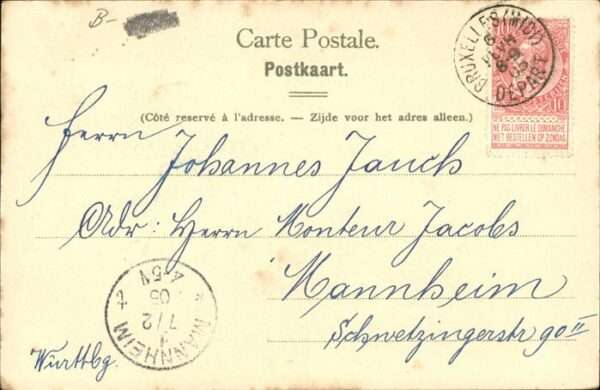 B-
Carte Postale.
Postkaart.
(Côté reservé à l'adresse. — Zijde voor het adres alleen.)
BRUXELLES (MIDI)
DEPART
10
NE PAS LIVRER LE DIMANCHE
NIET BESTELLEN OP ZONDAG
Herrn Johannes Jauch
Adr: Herrn Monteur Jacobs
Mannheim
Schwetzingerstr 90 II
Württbg.
MANNHEIM
7/2
05
4-5V